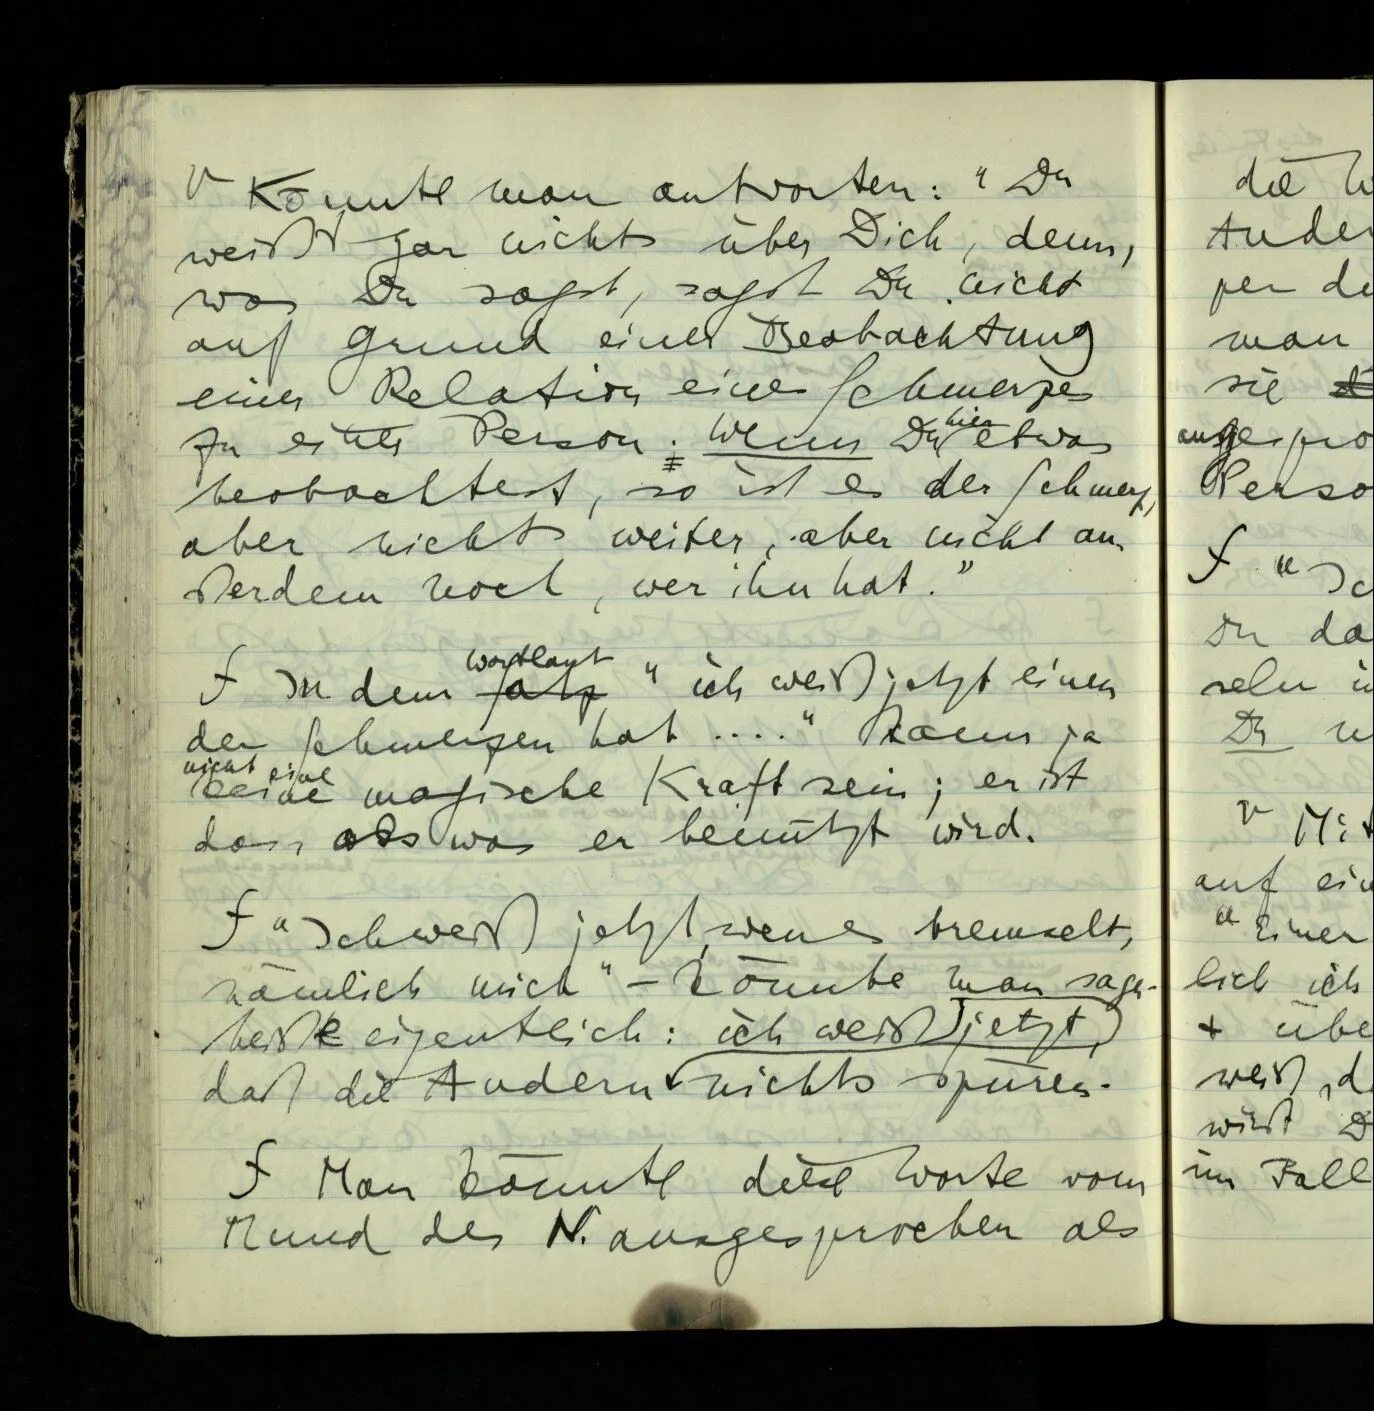 v Könnte man antworten: "Du
weißt gar nichts über Dich, denn,
was Du sagst, sagst Du nicht
auf Grund einer Beobachtung
einer Relation eines Schmerzes
zu einer Person. Wenn Du hier etwas
beobachtest, so ist es der Schmerz,
aber nichts weiter, aber nicht au-
ßerdem noch, wer ihn hat."
f In dem Wortlaut Satz "ich weiß jetzt einen
der Schmerzen hat ...." kann ja
nicht eine keine magische Kraft sein; er ist
das, als was er benützt wird.
f "Ich weiß jetzt, wen es bremselt,
nämlich mich" – könnte man sagen
heißt eigentlich: ich weiß jetzt,
daß die Andern nichts spüren.
f Man könnte diese Worte vom
Mund des N. ausgesprochen als
die
Ander
per de
man
sie
ausgespro
Perso
f "Ich
Du da
seln
Du
v Mit
auf ein
"Einer
lich ich
+ übe
weiß, d
wirst D
im Fall